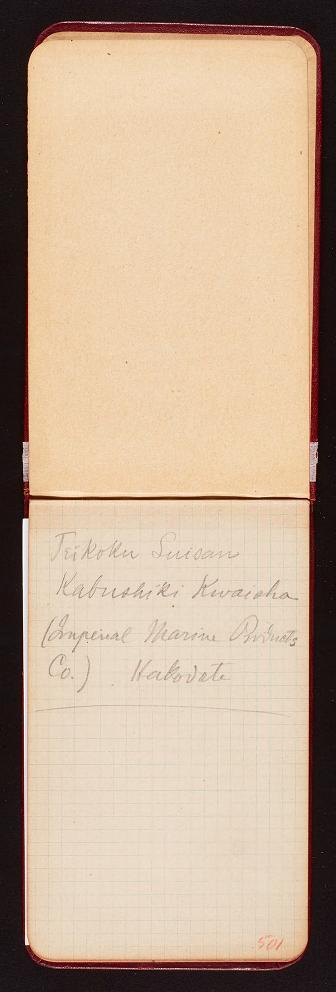 Teikoku Suisan
Kabushiki Kwaisha
(Imperial Marine Products
Co.) Hakodate
501